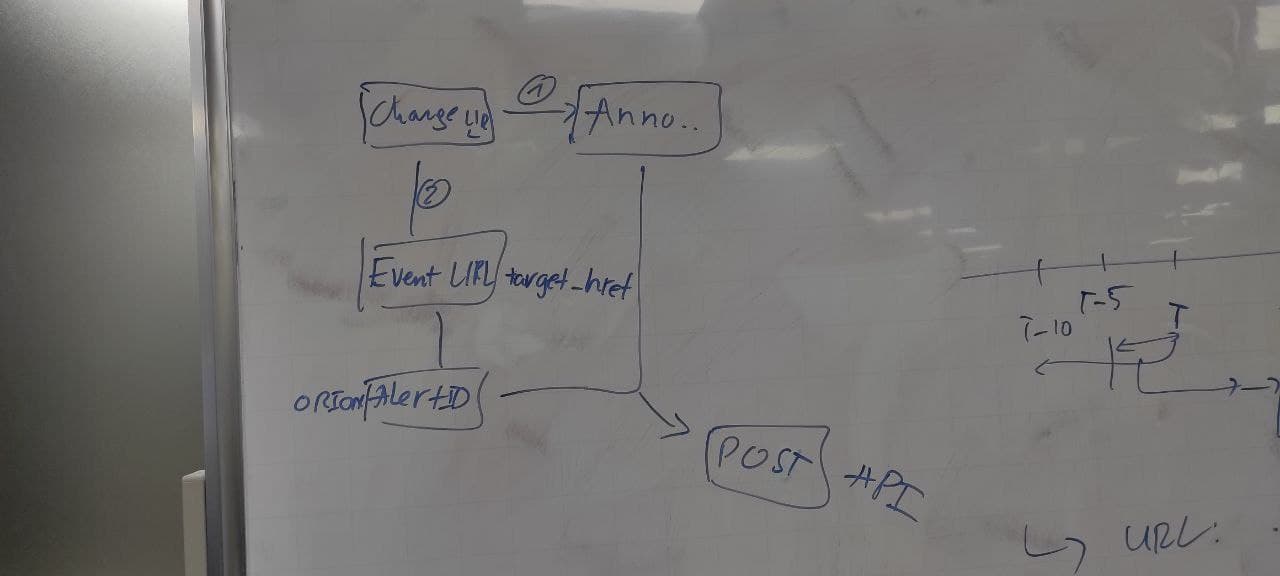 ①
Change
Anno..
②
Event URL target_href
ORION AlertID
POST API
T-10
T-5
T
URL: